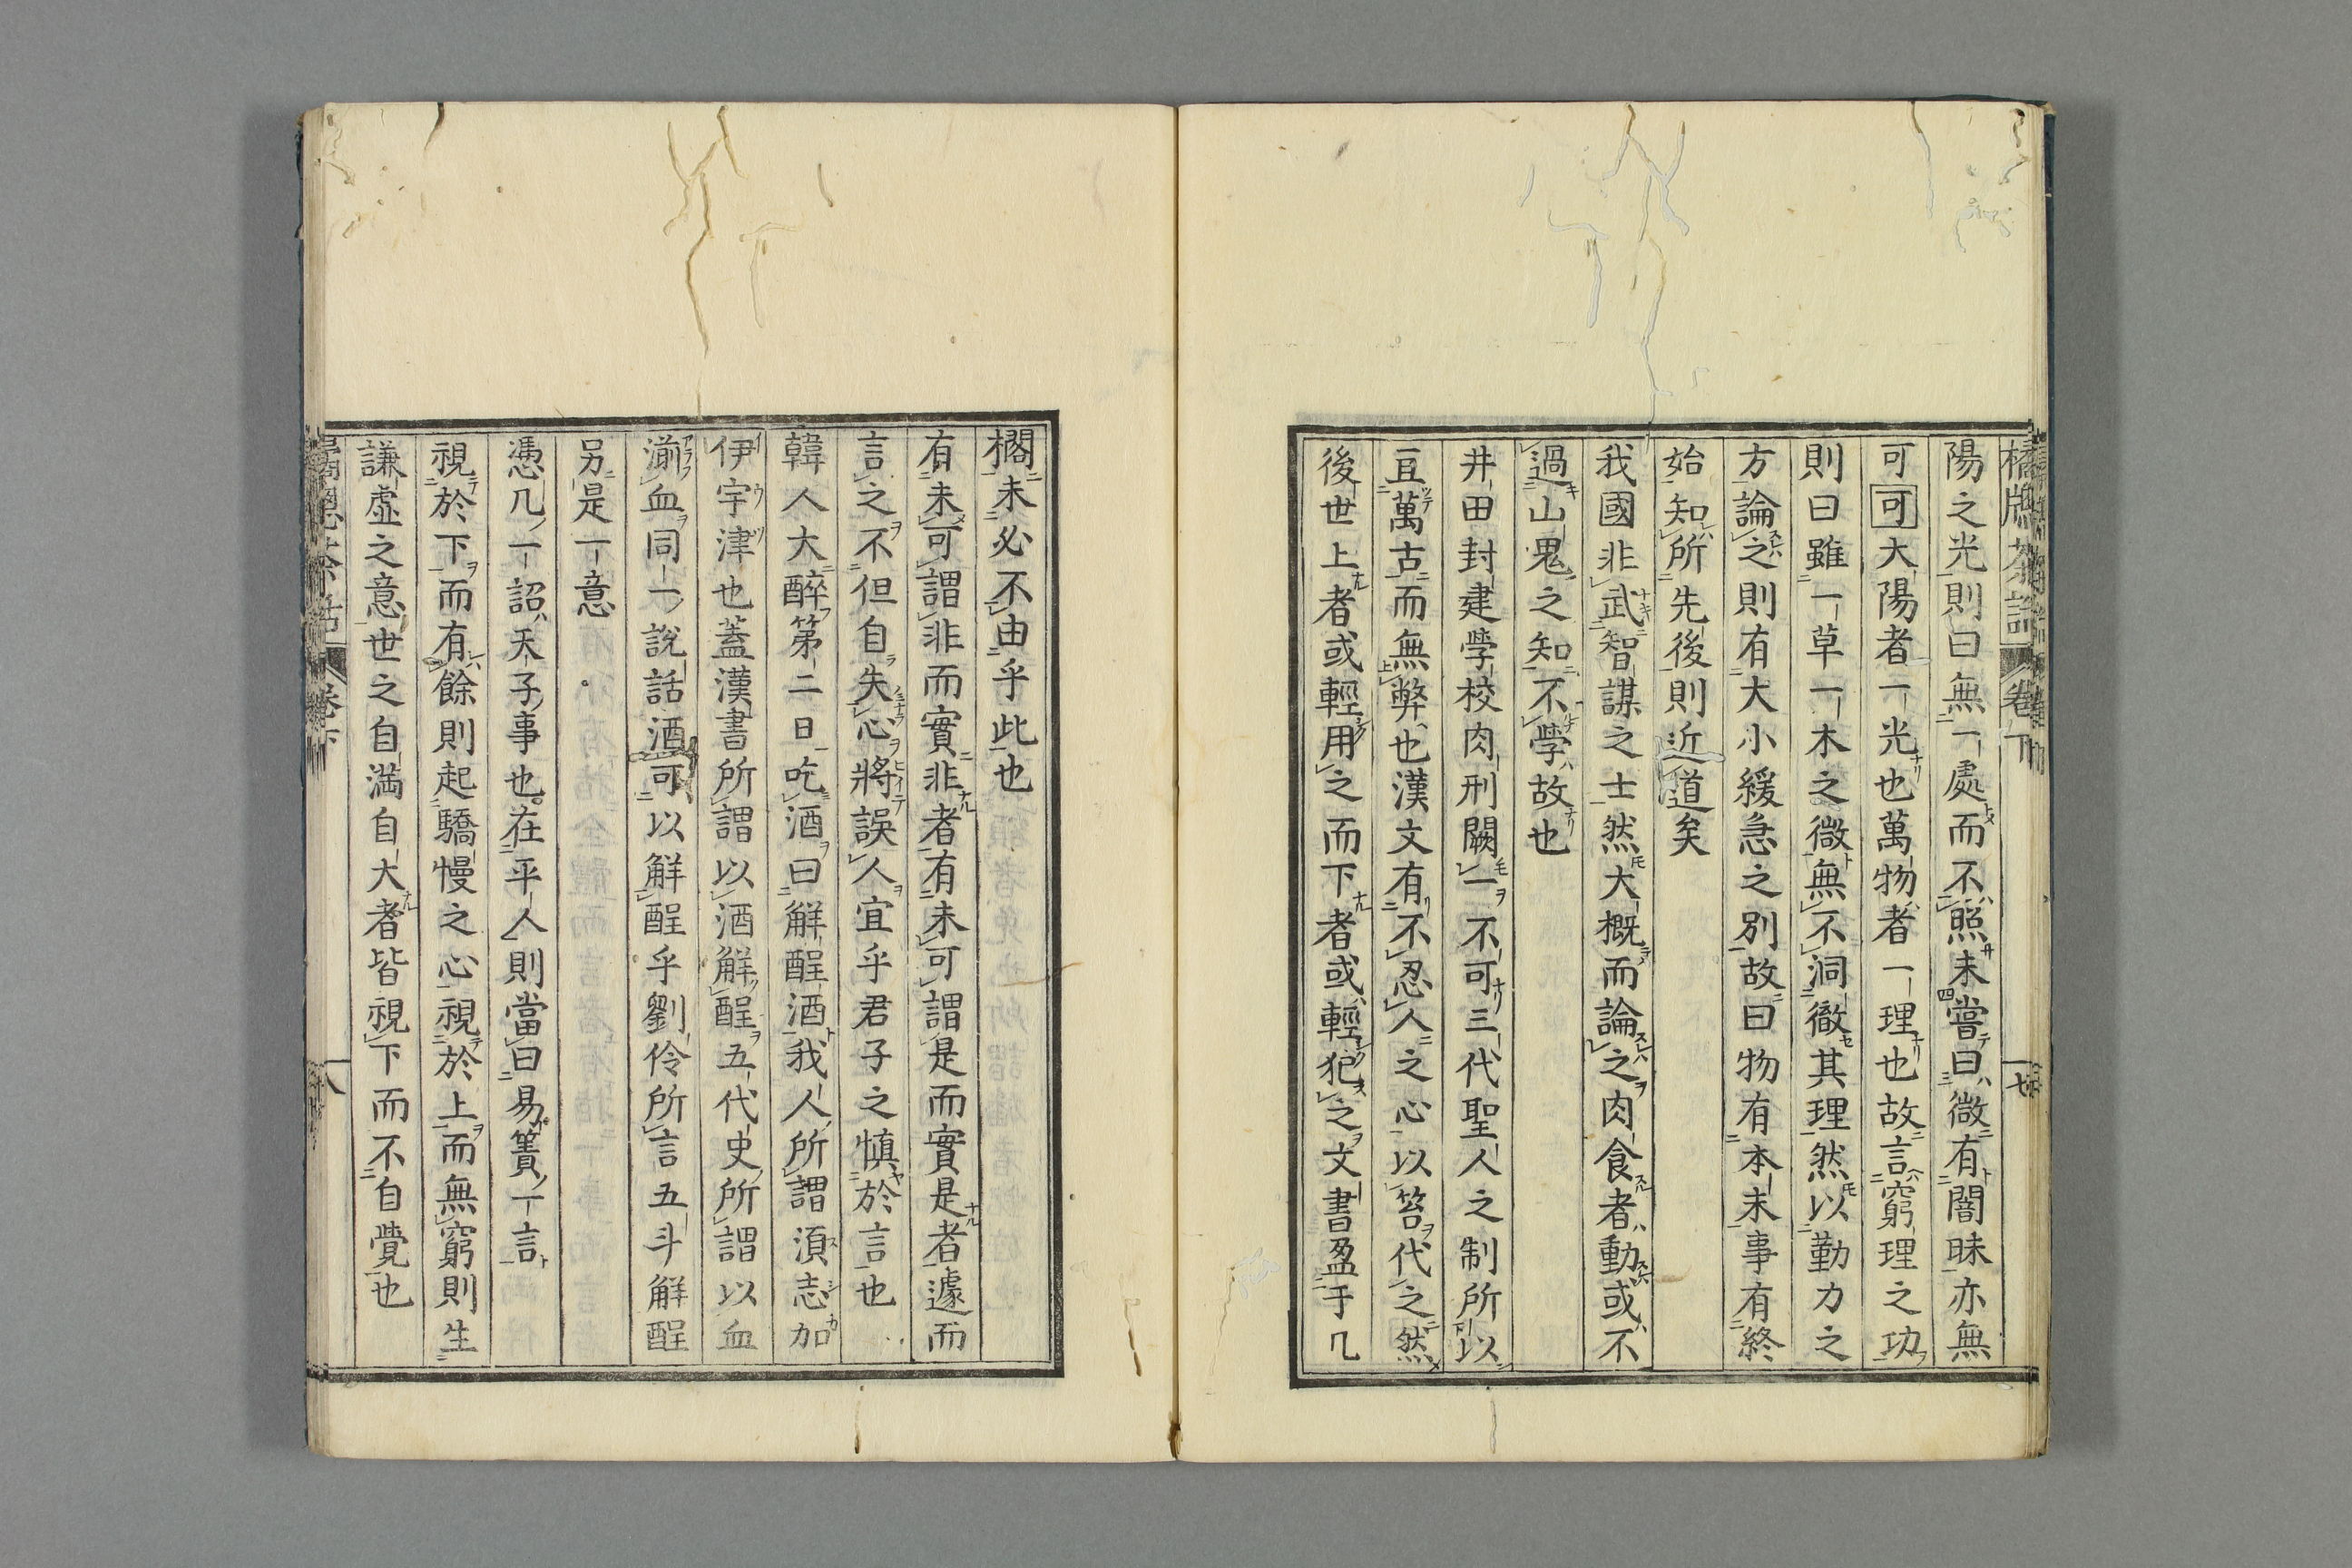 橘牕茶話 卷下 七
陽之光則曰無一處而不照未嘗曰微有闇昧亦無
可可大陽者一光也萬物者一理也故言窮理之功
則曰雖一草一木之微無不洞徹其理然以勤力之
方論之則有大小緩急之別故曰物有本末事有終
始知所先後則近道矣
我國非武智謀之士然大概而論之肉食者動或不
過山鬼之知不學故也
井田封建學校肉刑闕一不可三代聖人之制所以
亘萬古而無弊也漢文有不忍人之心以笞代之然
後世上者或輕用之而下者或輕犯之文書盈于几
櫊未必不由乎此也
有未可謂非而實非者有未可謂是而實是者遽而
言之不但自失心將誤人宜乎君子之慎於言也
韓人大醉第二日吃酒曰解酲酒我人所謂須志加
伊宇津也蓋漢書所謂以酒解酲五代史所謂以血
湔血同一說話酒可以解酲乎劉伶所言五斗解酲
另是一意
憑几一詔天子事也在平人則當曰易簀一言
視於下而有餘則起驕慢之心視於上而無窮則生
謙虛之意世之自満自大者皆視下而不自覺也
卷下 八